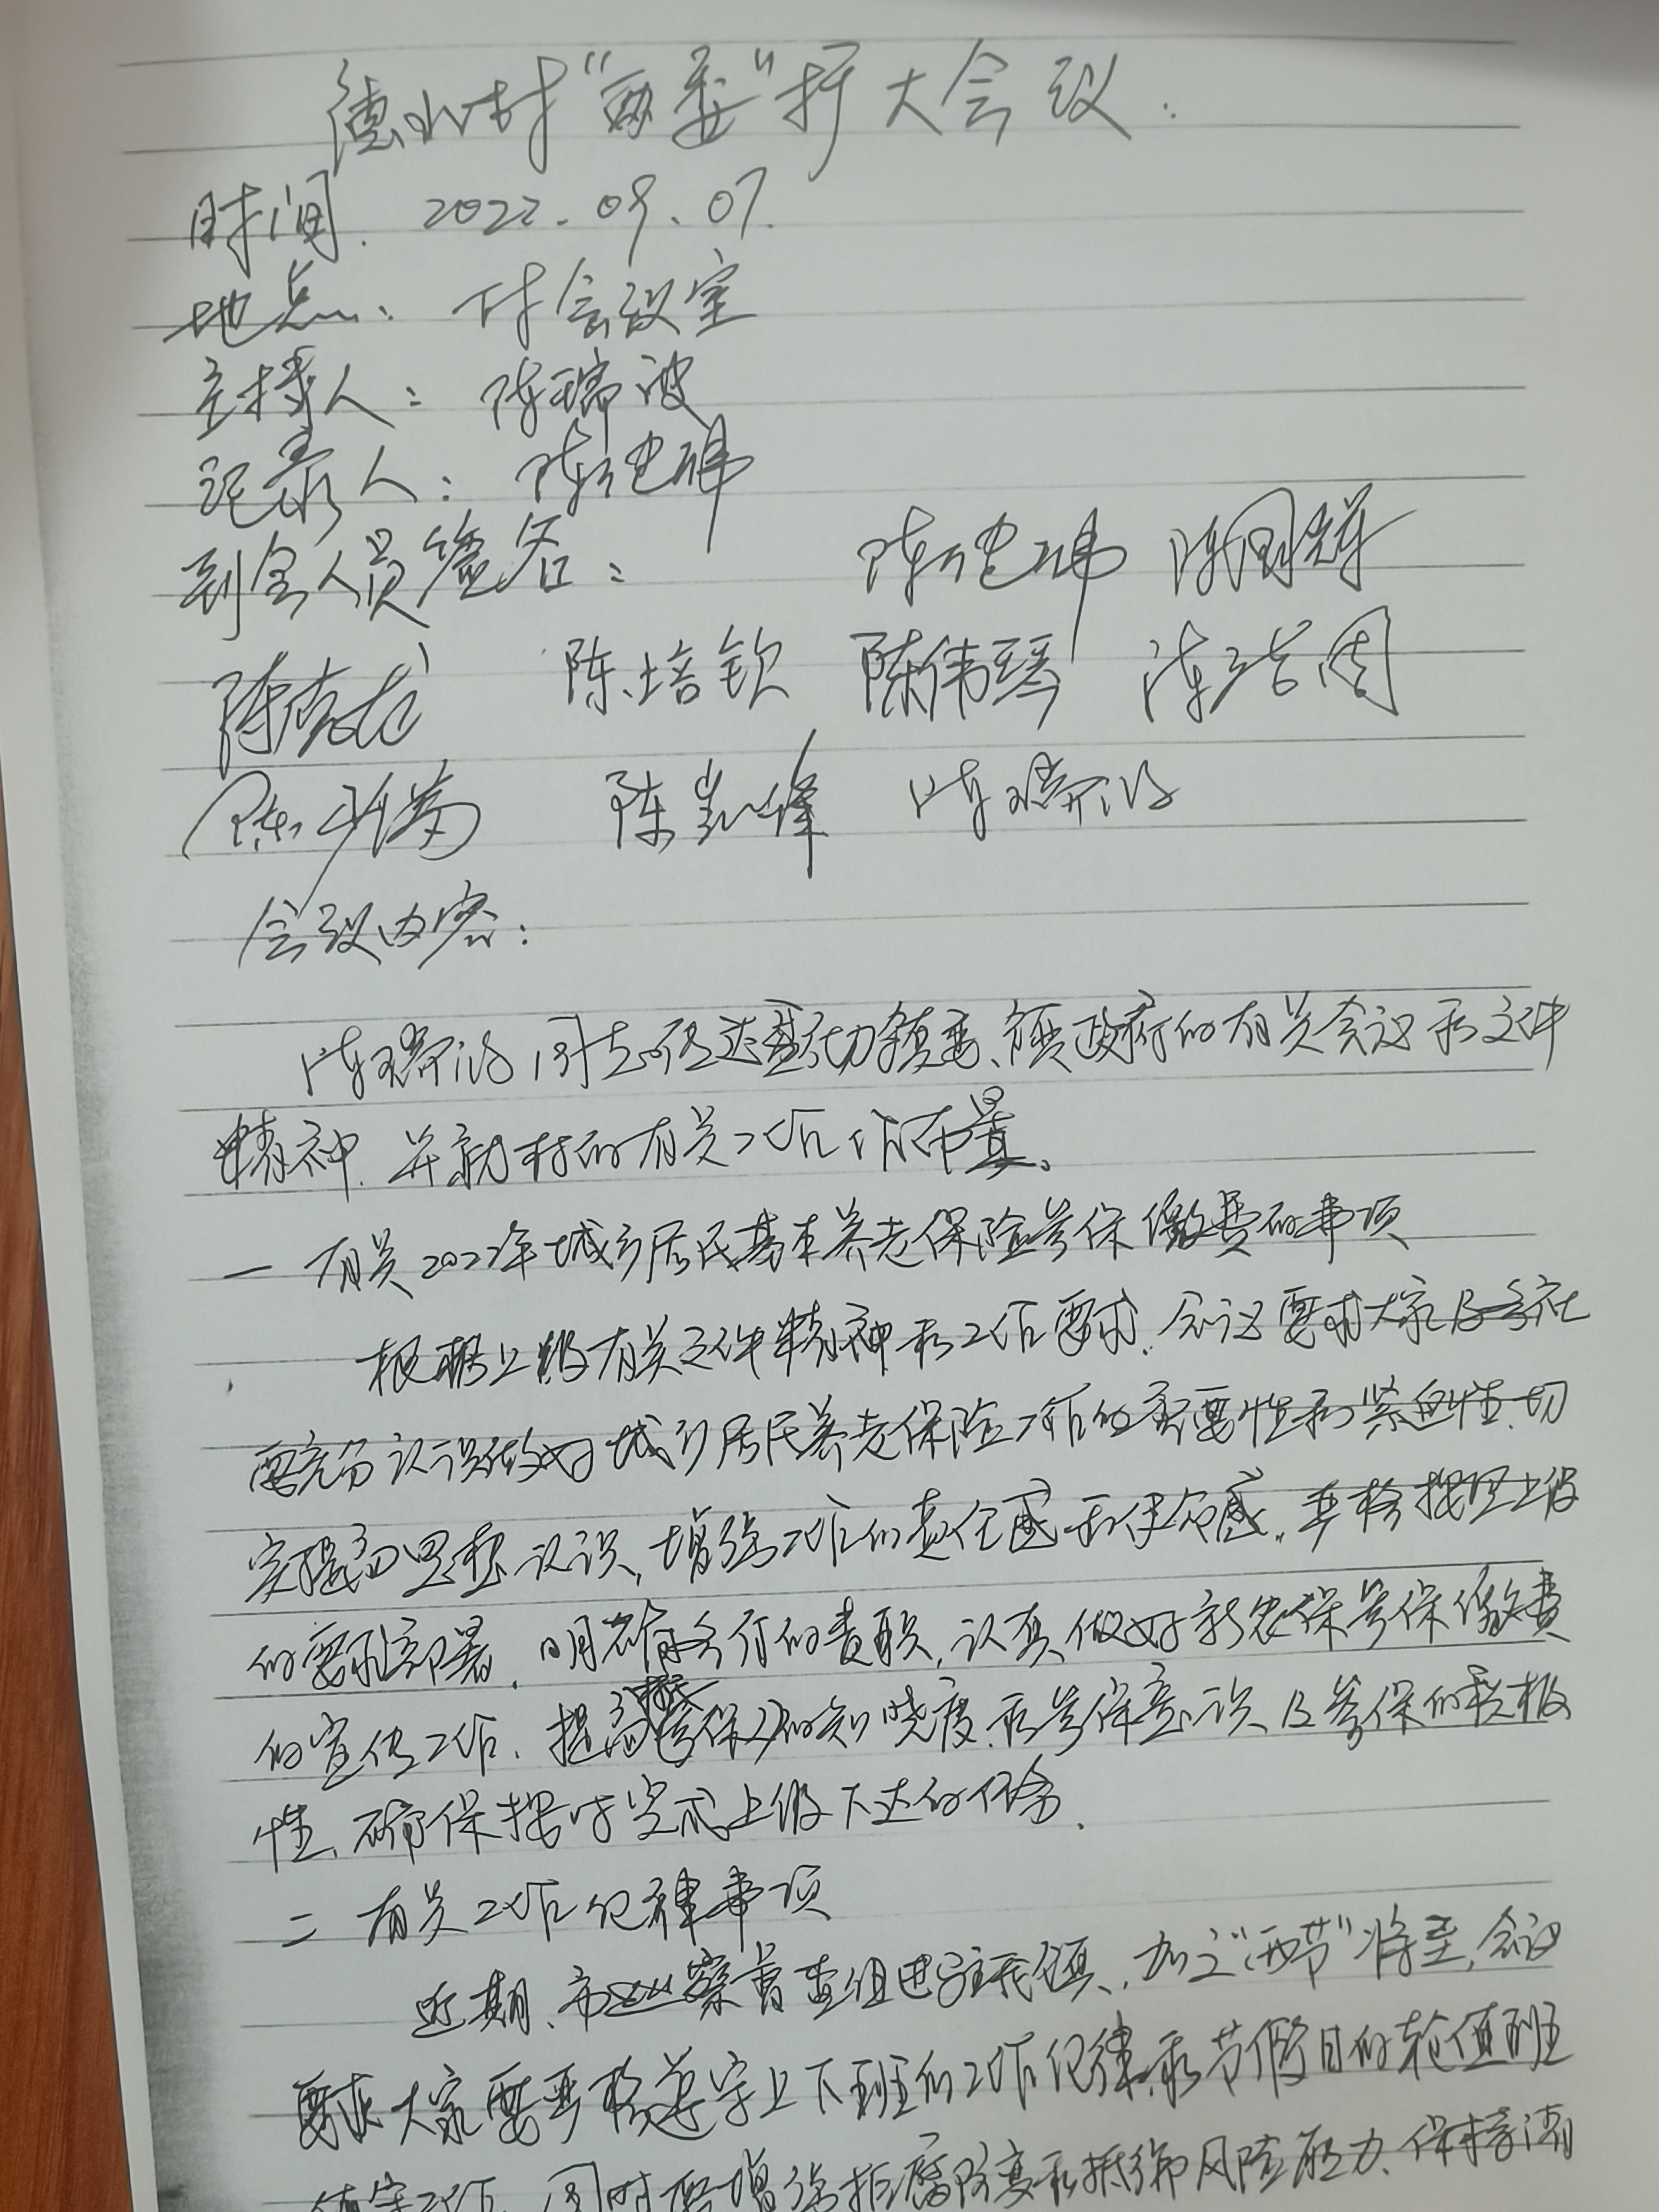 德北村“两委”扩大会议.
时间. 2022.09.07.
地点: 村会议室
主持人: 陈瑞波
记录人: 陈
到会人员签名: 陈 陈国辉
陈 陈培钦 陈伟琴 陈浩周
陈 陈凯锋 陈瑞波
会议内容:
陈瑞波同志传达镇委、镇政府的有关会议和文件
精神.并就村的有关工作作布置。
一 有关2022年城乡居民基本养老保险参保缴费的事项
根据上级有关文件精神和工作要求.会议要求大家
要充分认识做好城乡居民养老保险工作的重要性和紧迫性.切
实提高思想认识,增强工作的责任感和使命感.严格按照上级
的要求部署.明确各行的责职,认真做好新农保参保缴费
的宣传工作.提高参保人的知晓度.和参保意识及参保的积极
性.确保按时完成上级下达的任务.
二 有关工作纪律事项
近期、市巡察 组进驻我镇.,加之“两节”将至,会议
要求大家要严格遵守上下班的工作纪律.和节假日的轮值班
值守工作.同时要增强拒腐防变和抵御风险能力.保持清